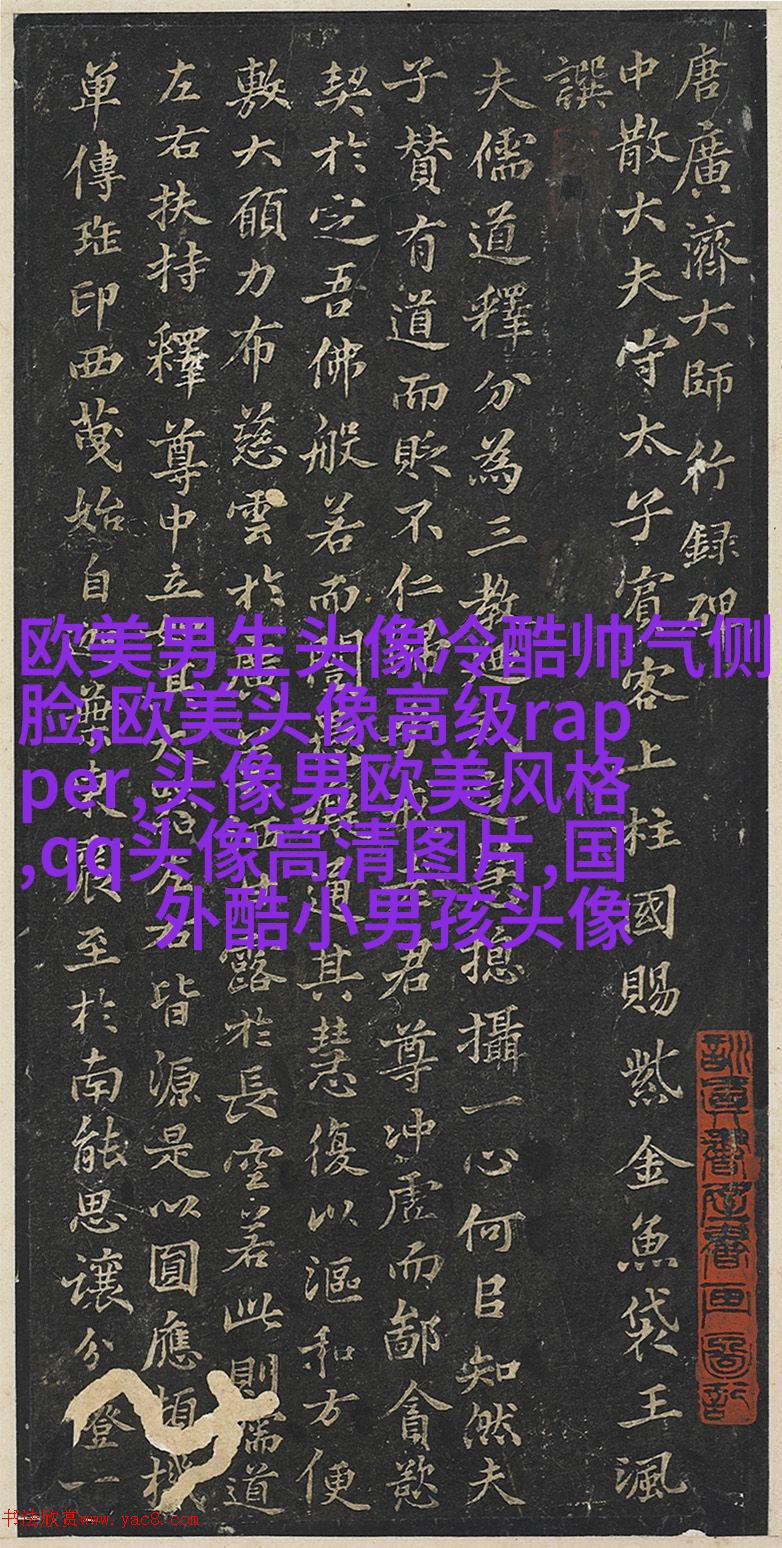 唐廣濟大師行録碑
中散大夫守太子賓客上柱國賜紫金魚袋王渢
譔
夫儒道釋分為三教
摠攝一心何㠯知然夫
子贊有道而貶不仁歸
君尊冲虛而鄙貪慾
契於定吾佛般若而開
通其慧復以漚和方便
敷大願力布慈雲於廣
露於長空若此則儒道
左右扶持釋尊中立
名皆源是以圓應
單傳班印西
始自
至於南能思讓分燈一
欧美男生头像冷酷帅气侧
脸,欧美头像高级rap
per,头像男欧美风格
,qq头像高清图片,国
外酷小男孩头像
书法欣赏www.yac8.com